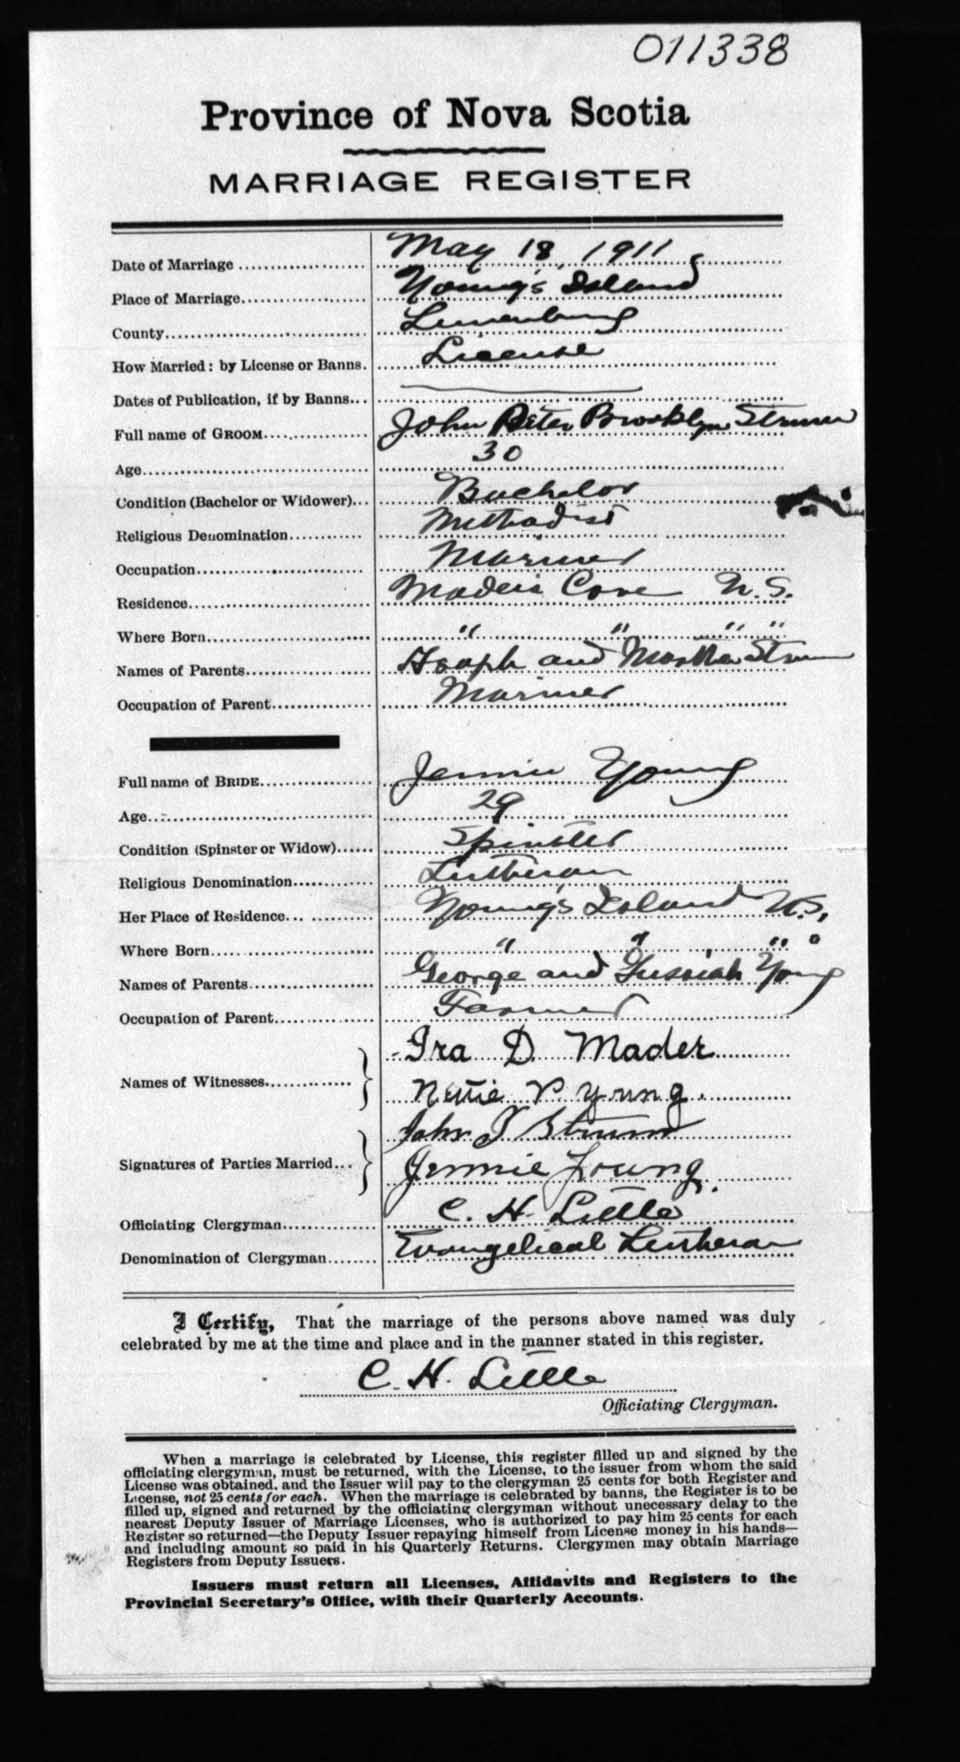 011338
Province of Nova Scotia
MARRIAGE REGISTER
Date of Marriage May 18, 1911
Place of Marriage Young's Island
County Lunenburg
How Married: by License or Banns. License
Dates of Publication, if by Banns
Full name of GROOM John Peter Brooklyn Strum
Age 30
Condition (Bachelor or Widower) Bachelor
Religious Denomination Methodist
Occupation Mariner
Residence Mader's Cove N.S.
Where Born " " " "
Names of Parents and Martha Strum
Occupation of Parent Mariner
Full name of BRIDE Jennie Young
Age 29
Condition (Spinster or Widow) Spinster
Religious Denomination Lutheran
Her Place of Residence Young's Island N.S.
Where Born " " "
Names of Parents George and Young
Occupation of Parent Farmer
Names of Witnesses Ira D. Mader
Nettie V. Young.
Signatures of Parties Married John Strum
Jennie Young.
Officiating Clergyman C. H. Little
Denomination of Clergyman Evangelical Lutheran
I Certify, That the marriage of the persons above named was duly
celebrated by me at the time and place and in the manner stated in this register.
C. H. Little
Officiating Clergyman.
When a marriage is celebrated by License, this register filled up and signed by the
officiating clergyman, must be returned, with the License, to the issuer from whom the said
License was obtained, and the Issuer will pay to the clergyman 25 cents for both Register and
License, not 25 cents for each. When the marriage is celebrated by banns, the Register is to be
filled up, signed and returned by the officiating clergyman without unecessary delay to the
nearest Deputy Issuer of Marriage Licenses, who is authorized to pay him 25 cents for each
Register so returned—the Deputy Issuer repaying himself from License money in his hands—
and including amount so paid in his Quarterly Returns. Clergymen may obtain Marriage
Registers from Deputy Issuers.
Issuers must return all Licenses, Affidavits and Registers to the
Provincial Secretary's Office, with their Quarterly Accounts.